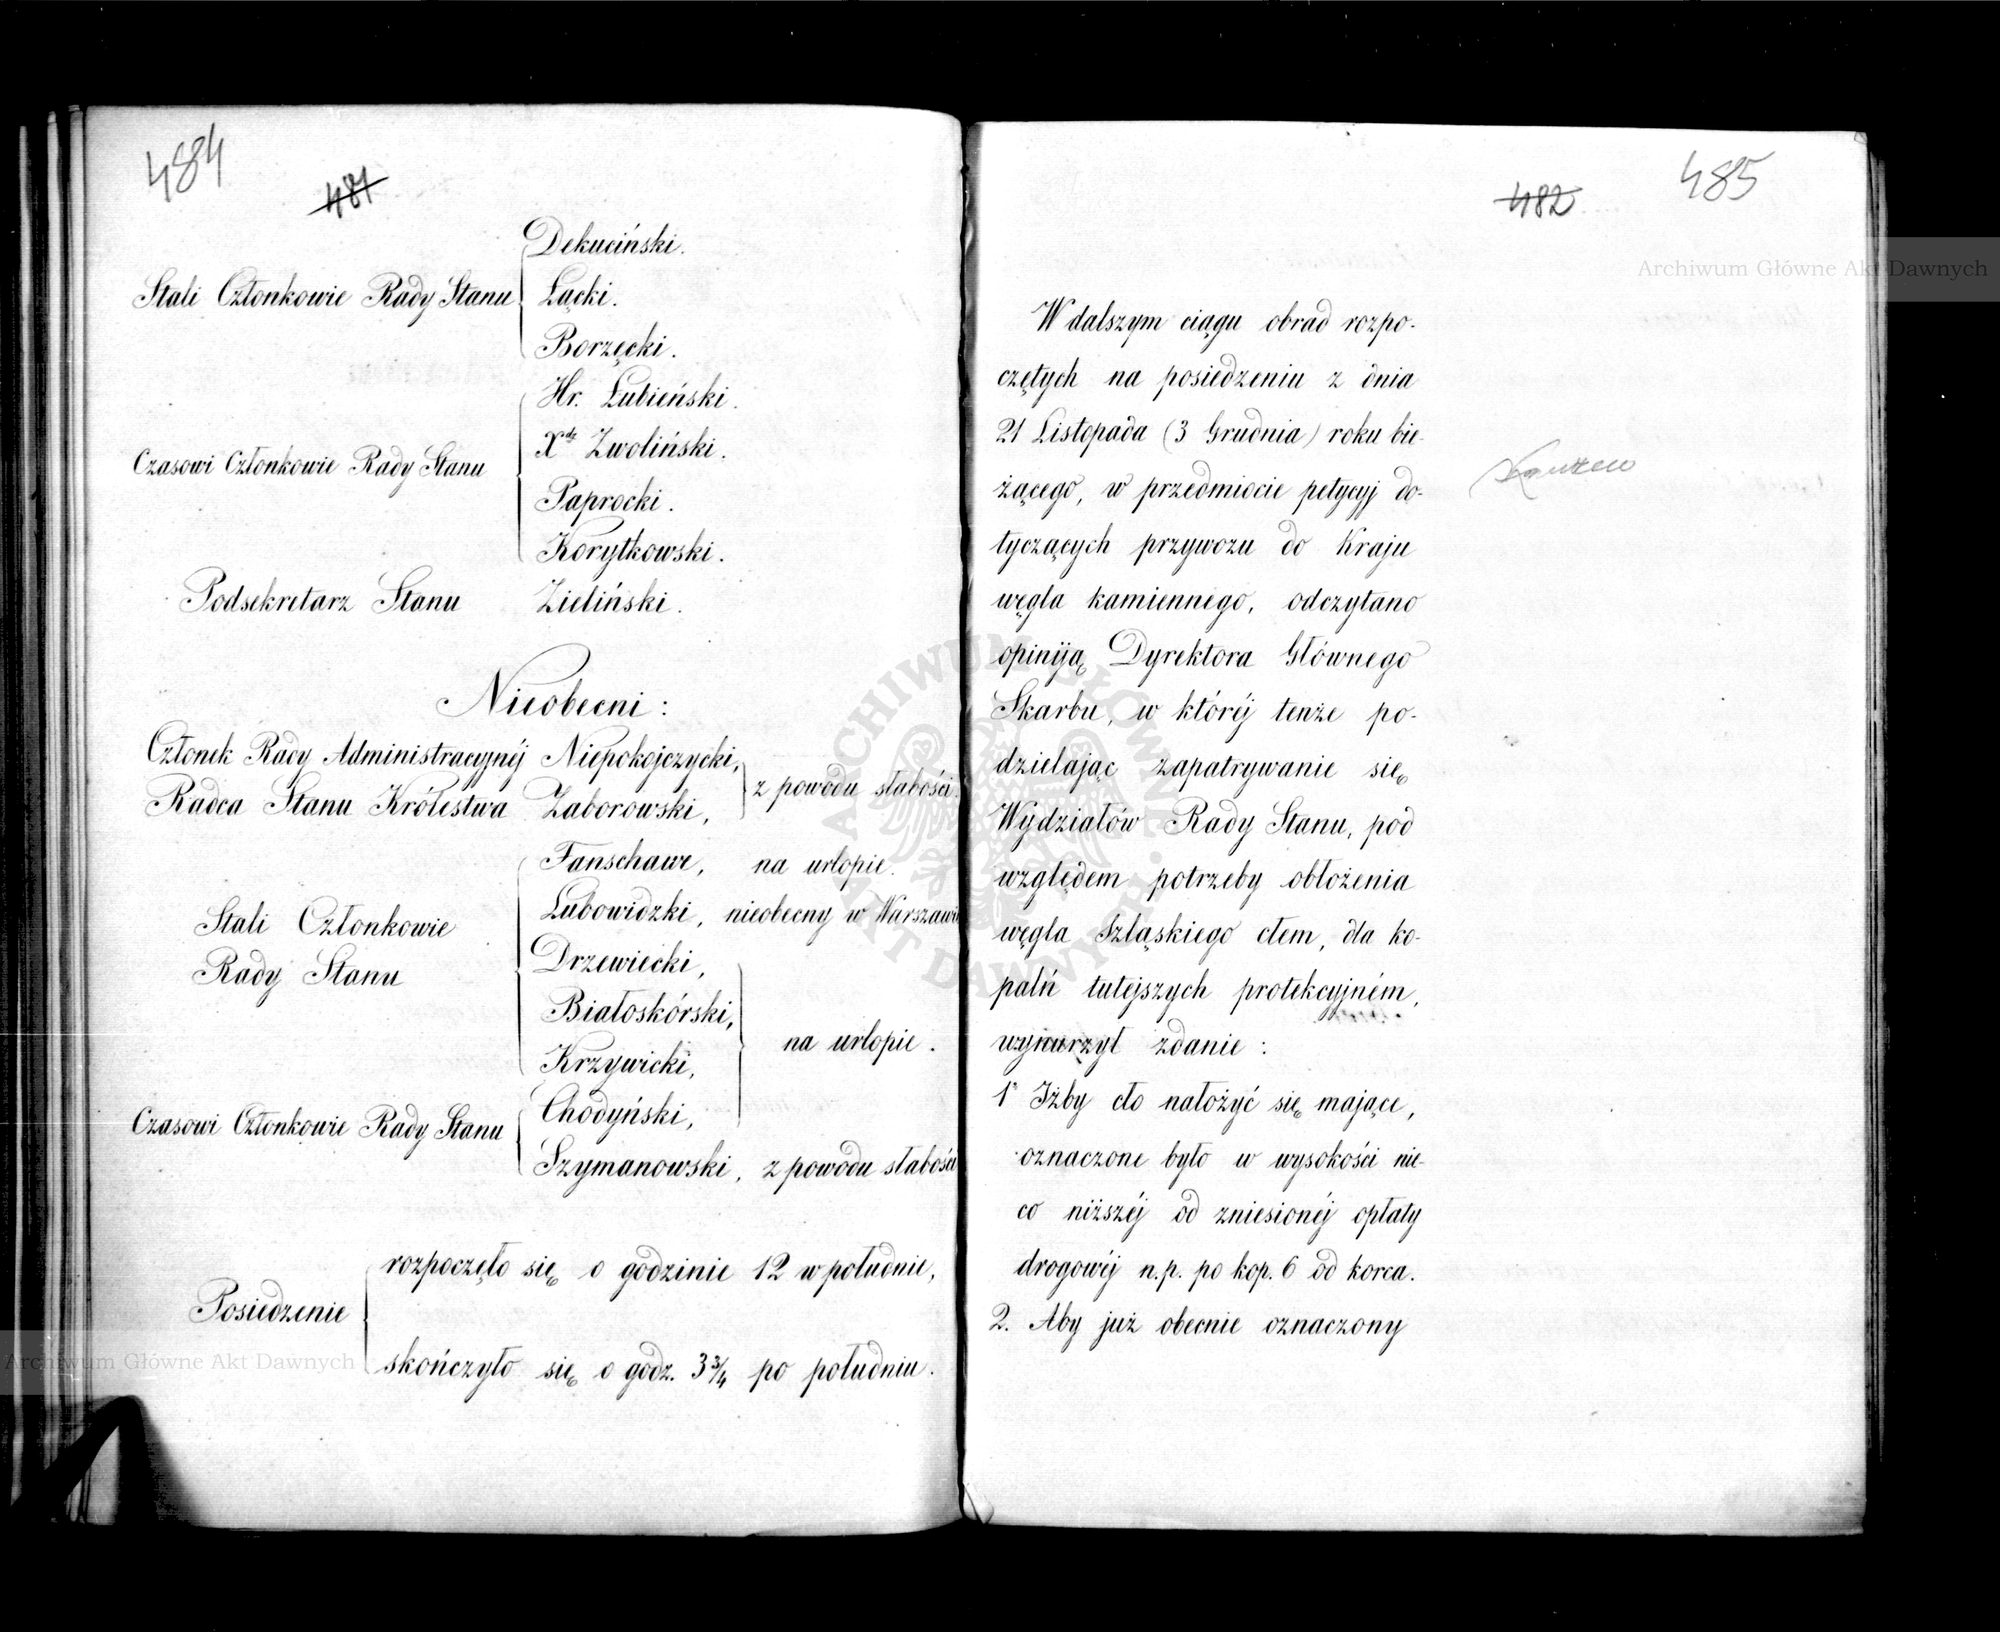 484
481
Dekuciński.
Stali Członkowie Rady Stanu Łącki.
Borzęcki.
Hr. Łubieński.
Xdz Zwoliński.
Czasowi Członkowie Rady Stanu
Paprocki.
Korytkowski.
Podsekretarz Stanu Zieliński.
Nieobecni:
Członek Rady Administracyjnéj Niepokojczycki,
Radca Stanu Królestwa Zaborowski, z powodu słabości.
Fanschawe, na urlopie.
Stali Członkowie
Rady Stanu
Łubowidzki, nieobecny w Warszawie
Drzewiecki,
Białoskórski,
Krzywicki,
na urlopie.
Czasowi Członkowie Rady Stanu
Chodyński,
Szymanowski, z powodu słabości
Posiedzenie
rozpoczęło się o godzinie 12 w południe,
skończyło się o godz. 3 3/4 po południu.
482
485
W dalszym ciągu obrad rozpo-
czętych na posiedzeniu z dnia
21 Listopada (3 Grudnia) roku bie-
żącego, w przedmiocie petycyj do-
tyczących przywozu do Kraju
węgla kamiennego, odczytano
opiniją Dyrektora Głównego
Skarbu, w któréj tenże po-
dzielając zapatrywanie się
Wydziałów Rady Stanu, pod
względem potrzeby obłożenia
węgla Szląskiego cłem, dla ko-
palń tutejszych protekcyjném,
wynurzył zdanie:
1° Iżby cło nałożyć się mające,
oznaczone było w wysokości nie-
co niższéj od zniesionéj opłaty
drogowéj n.p. po kop. 6 od korca.
2. Aby już obecnie oznaczony
Archiwum Główne Akt Dawnych
Archiwum Główne Akt Dawnych
ARCHIWUM GŁÓWNE AKT DAWNYCH